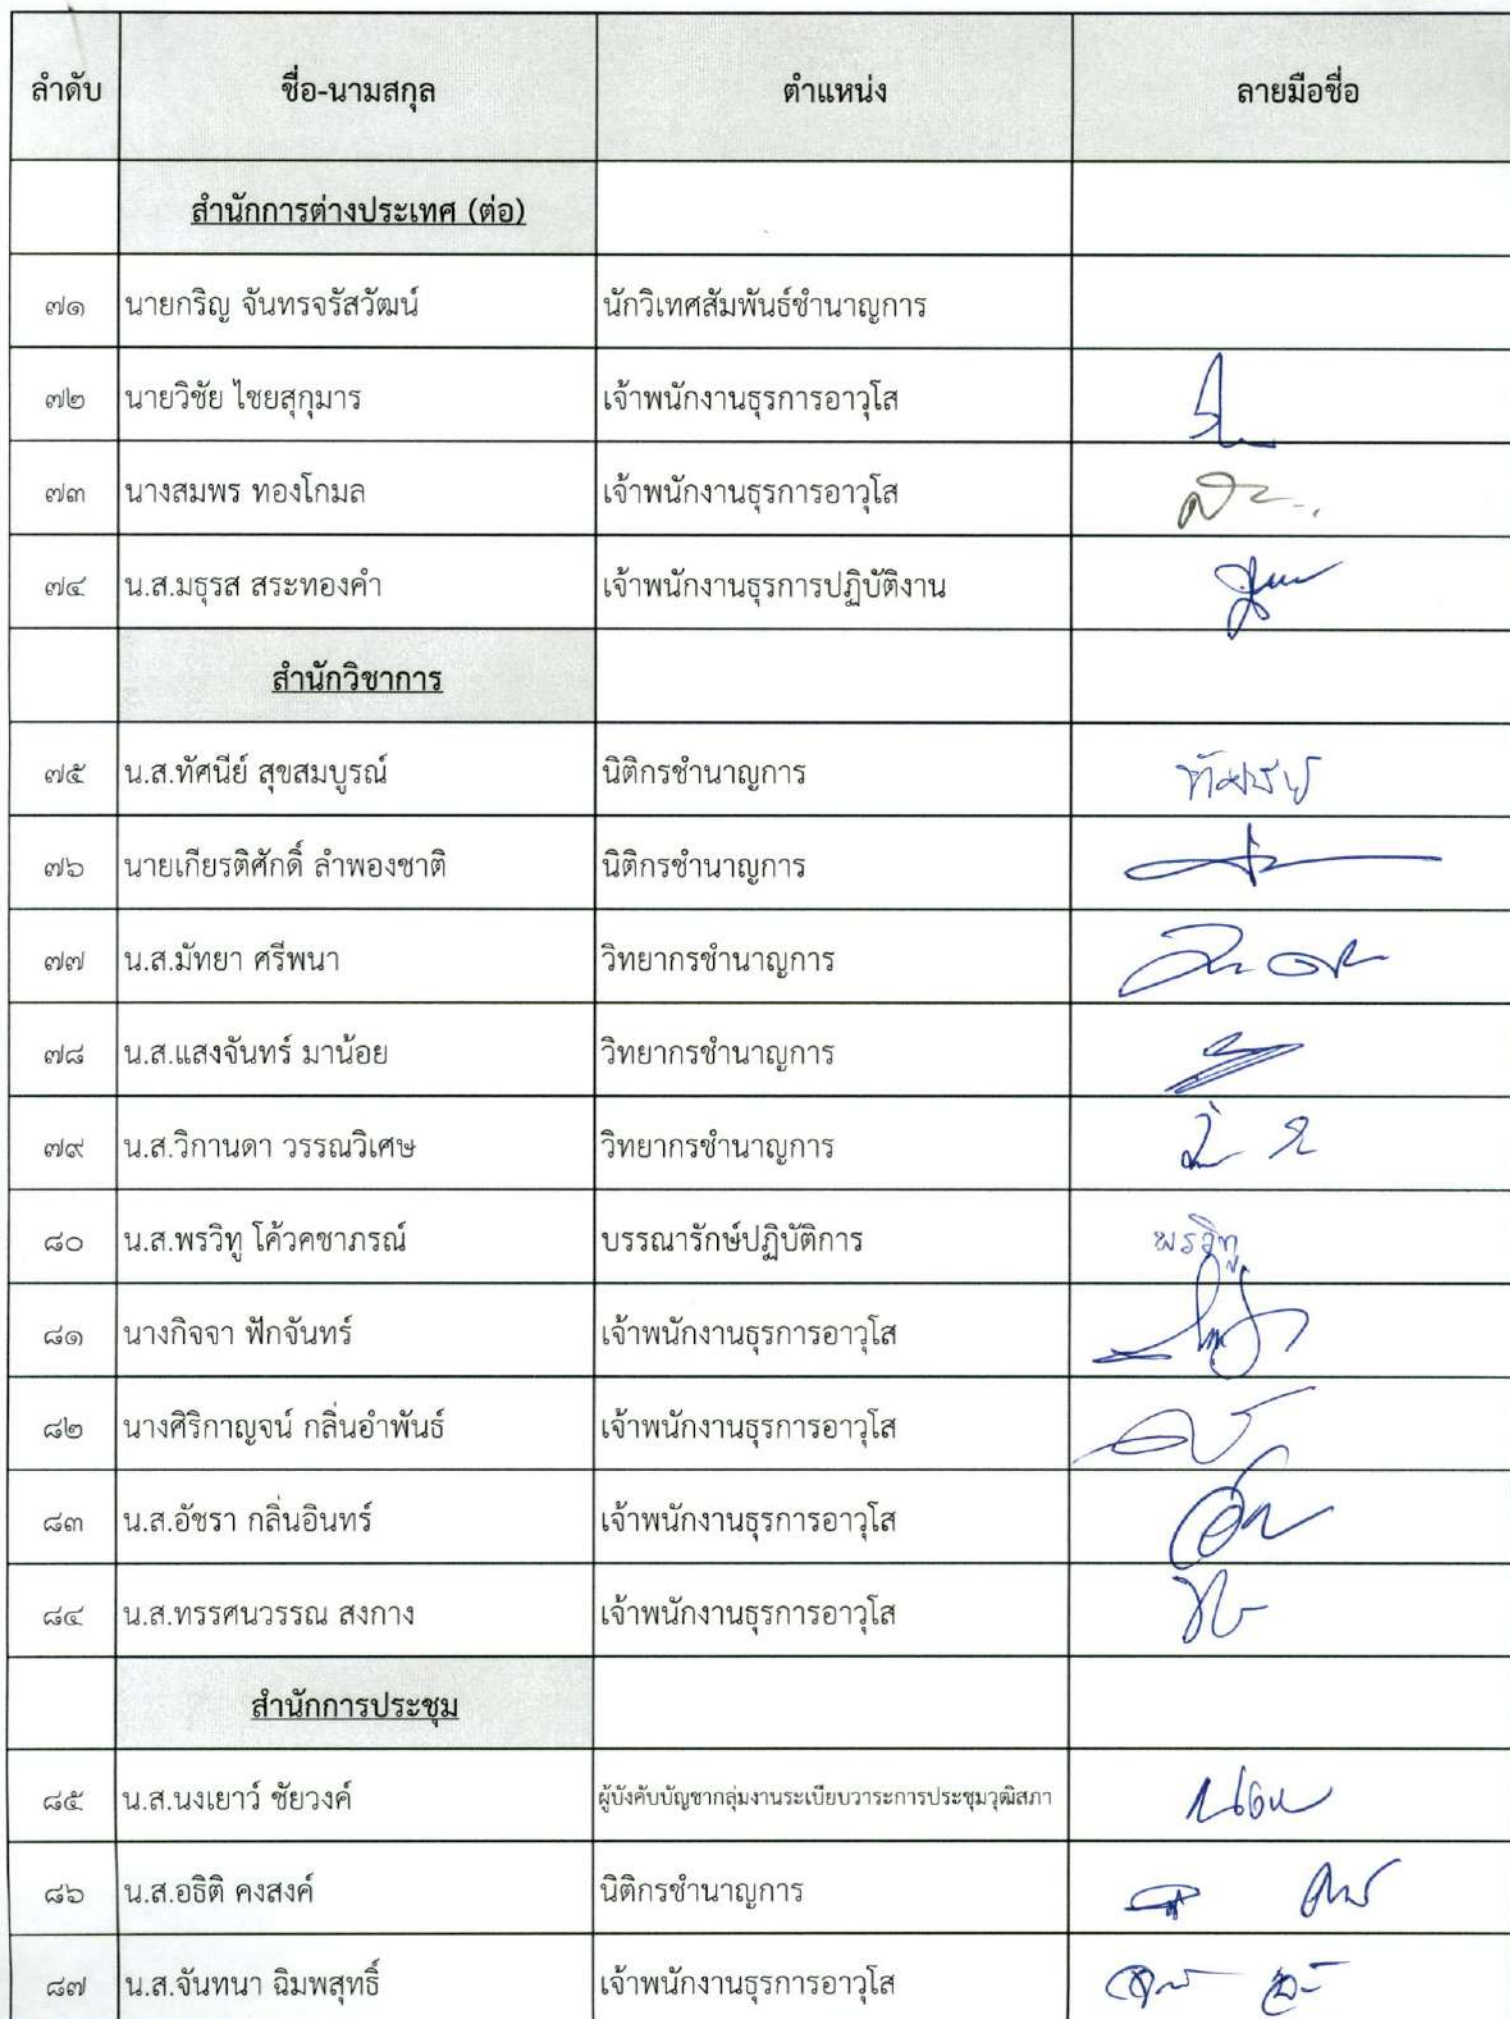 ลำดับ ชื่อ-นามสกุล ตำแหน่ง ลายมือชื่อ
สำนักการต่างประเทศ (ต่อ)
๗๑ นายกริญ จันทรจรัสวัฒน์ นักวิเทศสัมพันธ์ชำนาญการ
๗๒ นายวิชัย ไชยสุกุมาร เจ้าพนักงานธุรการอาวุโส
๗๓ นางสมพร ทองโกมล เจ้าพนักงานธุรการอาวุโส
๗๔ น.ส.มธุรส สระทองคำ เจ้าพนักงานธุรการปฏิบัติงาน
สำนักวิชาการ
๗๕ น.ส.ทัศนีย์ สุขสมบูรณ์ นิติกรชำนาญการ
๗๖ นายเกียรติศักดิ์ ลำพองชาติ นิติกรชำนาญการ
๗๗ น.ส.มัทยา ศรีพนา วิทยากรชำนาญการ
๗๘ น.ส.แสงจันทร์ มาน้อย วิทยากรชำนาญการ
๗๙ น.ส.วิกานดา วรรณวิเศษ วิทยากรชำนาญการ
๘๐ น.ส.พรวิทู โค้วคชาภรณ์ บรรณารักษ์ปฏิบัติการ พรวิทู
๘๑ นางกิจจา ฟักจันทร์ เจ้าพนักงานธุรการอาวุโส
๘๒ นางศิริกาญจน์ กลิ่นอำพันธ์ เจ้าพนักงานธุรการอาวุโส
๘๓ น.ส.อัชรา กลิ่นอินทร์ เจ้าพนักงานธุรการอาวุโส
๘๔ น.ส.ทรรศนวรรณ สงกาง เจ้าพนักงานธุรการอาวุโส
สำนักการประชุม
๘๕ น.ส.นงเยาว์ ชัยวงค์ ผู้บังคับบัญชากลุ่มงานระเบียบวาระการประชุมวุฒิสภา
๘๖ น.ส.อธิติ คงสงค์ นิติกรชำนาญการ
๘๗ น.ส.จันทนา ฉิมพสุทธิ์ เจ้าพนักงานธุรการอาวุโส